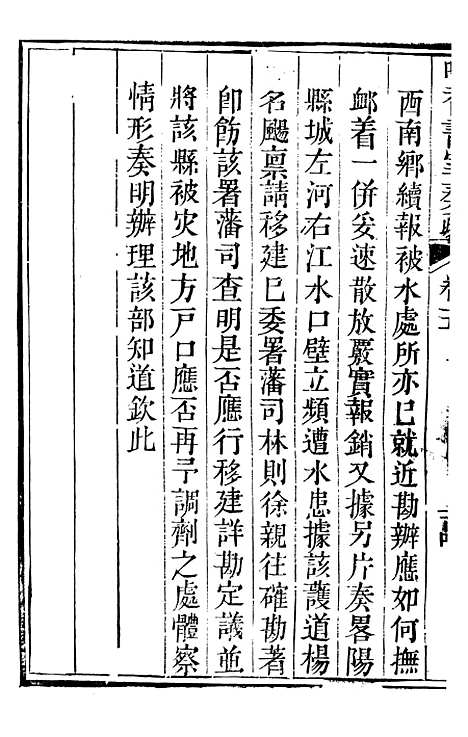 西南鄉續報被水處所亦已就近勘辦應如何撫
䘏着一併妥速散放覈實報銷又據另片奏畧陽
縣城左河右江水口壁立頻遭水患據該護道楊
名颺禀請移建已委署藩司林則徐親往確勘著
卽飭該署藩司查明是否應行移建詳勘定議並
將該縣被灾地方戸口應否再予調劑之處體察
情形奏明辦理該部知道欽此